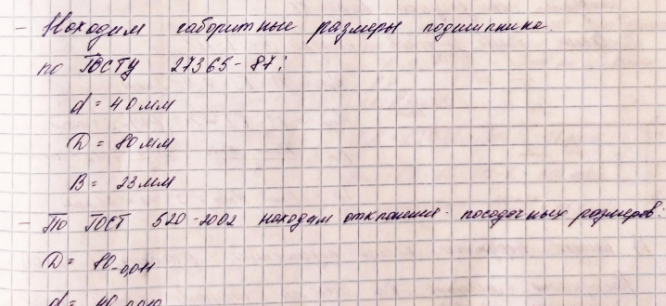 - Находим габоритные размеры подшипника.
по ГОСТу 27365-87:
d = 40мм
D = 80мм
B = 23мм
- По ГОСТ 520-2002 находим отклонения посадочных размеров:
D = 80-0,011
d = 40